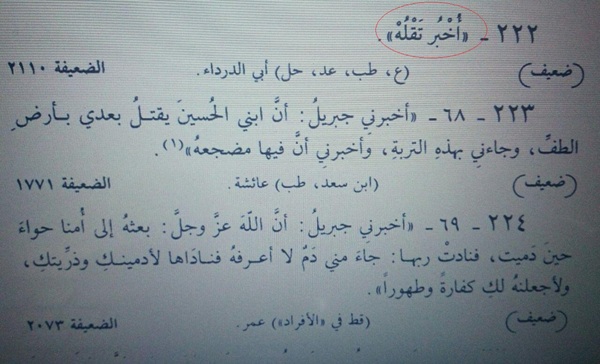 ٢٢٢ ـ «أُخْبُر تَقْلُهْ».
(ضعيف) (ع، طب، عد، حل) أبي الدرداء. الضعيفة ٢١١٠
٢٢٣ ـ ٦٨ ـ «أخبرني جبريلُ: أنَّ ابني الحُسينَ يقتلُ بعدي بأرضِ
الطفِّ، وجاءني بهذهِ التربةِ، وأخبرني أنَّ فيها مضجعهُ»(١).
(ضعيف) (ابن سعد، طب) عائشة. الضعيفة ١٧٧١
٢٢٤ ـ ٦٩ ـ «أخبرني جبريلُ: أنَّ اللّهَ عزَّ وجلَّ: بعثهُ إلى أُمنا حواءَ
حينَ دَميت، فنادتْ ربها: جاءَ مني دَمٌ لا أعرفهُ فنادَاها لأدمينكِ وذرِّيتكِ،
ولأجعلنهُ لكِ كفارةً وطهوراً».
(ضعيف) (قط في «الأفراد») عمر. الضعيفة ٢٠٧٣